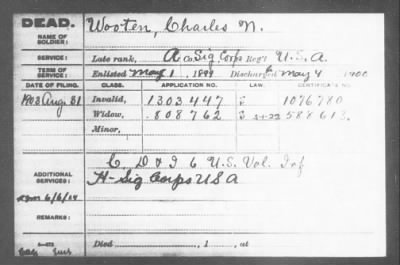 DEAD.
NAME OF SOLDIER: Wooten, Charles N.
SERVICE: Late rank, A Co. Sig Corps Reg't U.S.A.
TERM OF SERVICE: Enlisted May 1, 1899 Discharged May 4, 1900
DATE OF FILING. CLASS. APPLICATION NO. LAW. CERTIFICATE NO.
1903 Aug. 31 Invalid, 1303447 1076780
Widow, 808762 588613
Minor,
ADDITIONAL SERVICES: C, D & I 6 U.S. Vol. Inf
H - Sig Corps USA
REMARKS:
Died , 1 , at